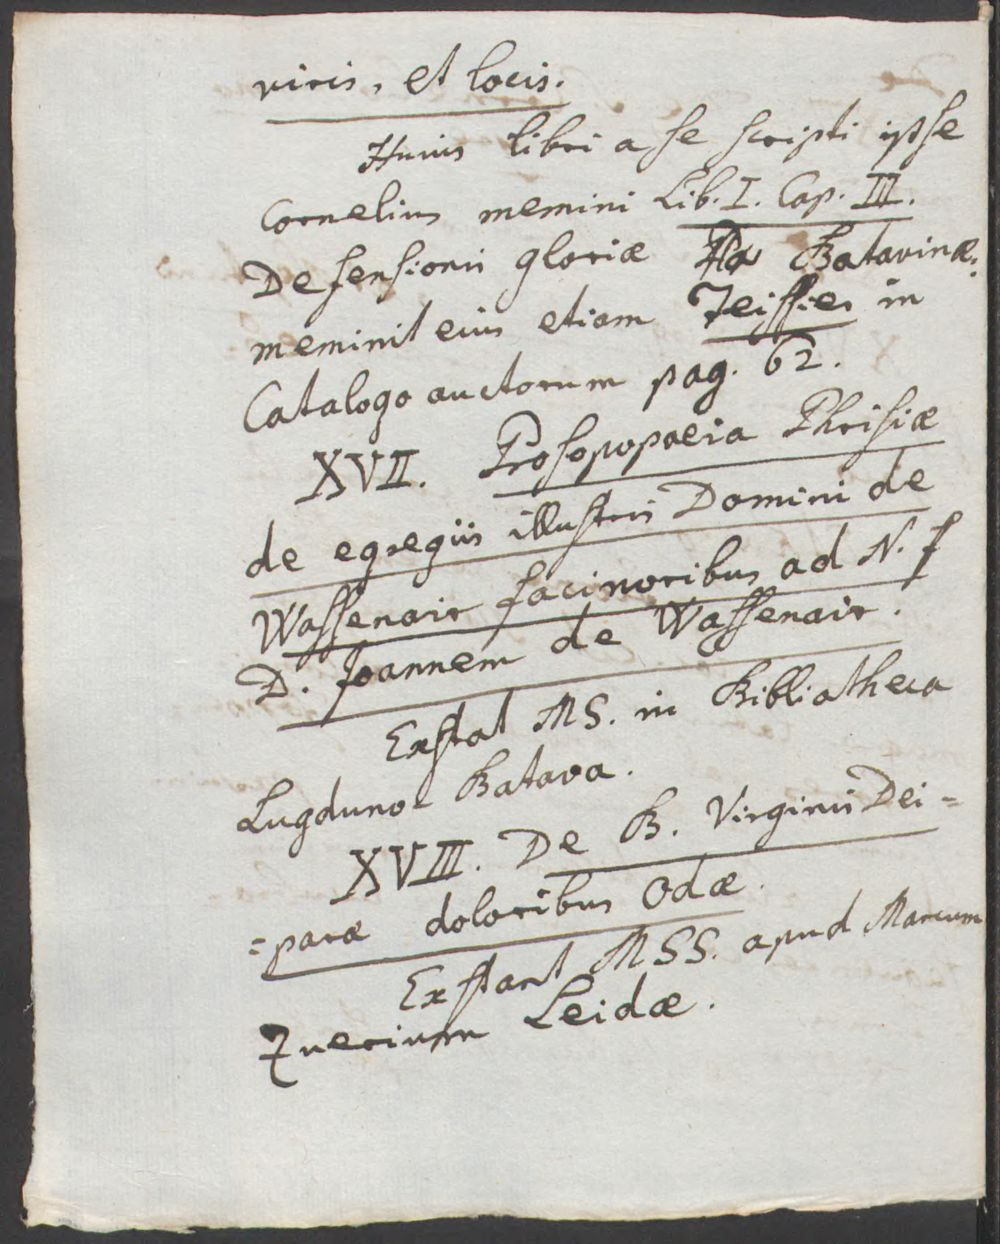 viris, et locis.
Huius libri a se scripti ipse
Cornelius memini Lib. I. Cap. III.
Defensionis gloriæ Batavinæ:
meminit eius etiam Teissier in
Catalogo auctorum pag. 62.
XVII. Prosopopaeia Phrisiæ
de egregiis illustris Domini de
Wassenair facinoribus ad N. f
D. Joannem de Wassenair.
Exstat MS. in Bibliatheca
Lugduno-Batava.
XVIII. De B. Virginis Dei=
=paræ doloribus Odæ.
Exstant MSS. apud Marcum
Zuerium Leidæ.